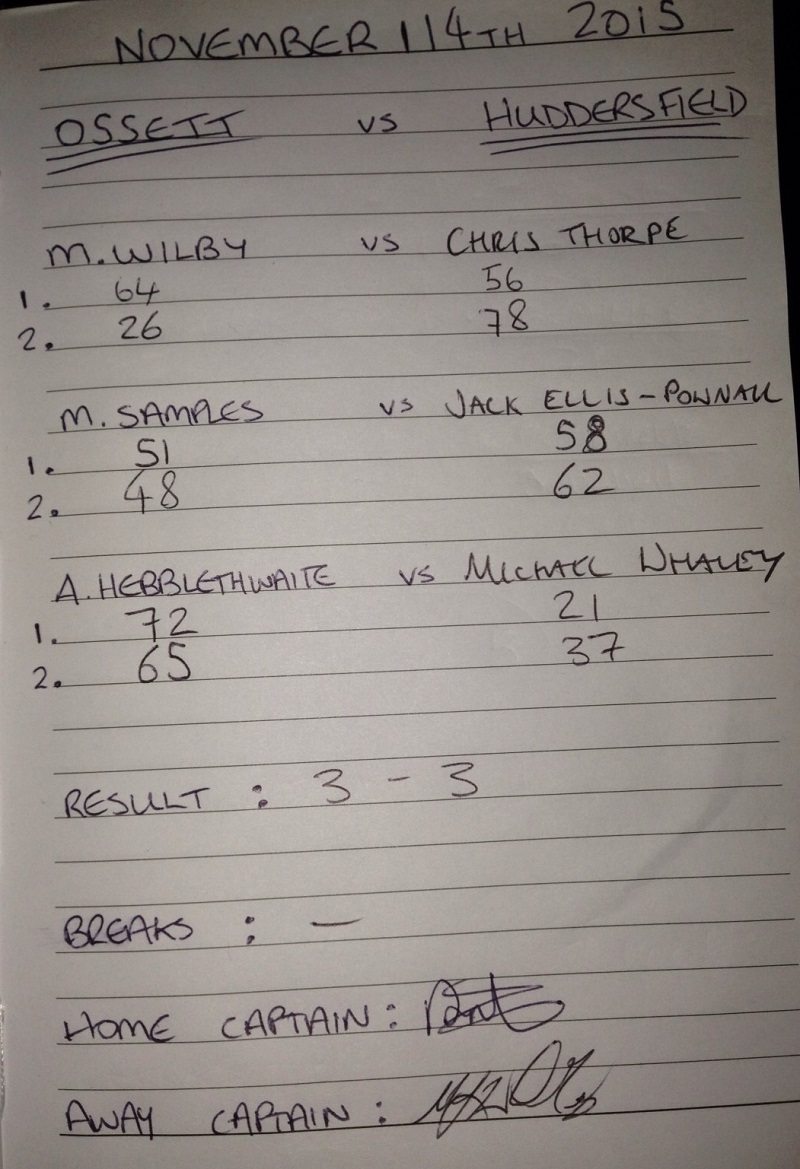 NOVEMBER 14TH 2015
OSSETT vs HUDDERSFIELD
M. WILBY vs CHRIS THORPE
1. 64 56
2. 26 78
M. SAMPLES vs JACK ELLIS-POWNALL
1. 51 58
2. 48 62
A. HEBBLETHWAITE vs MICHAEL WHALEY
1. 72 21
2. 65 37
RESULT : 3 - 3
BREAKS : —
HOME CAPTAIN :
AWAY CAPTAIN :